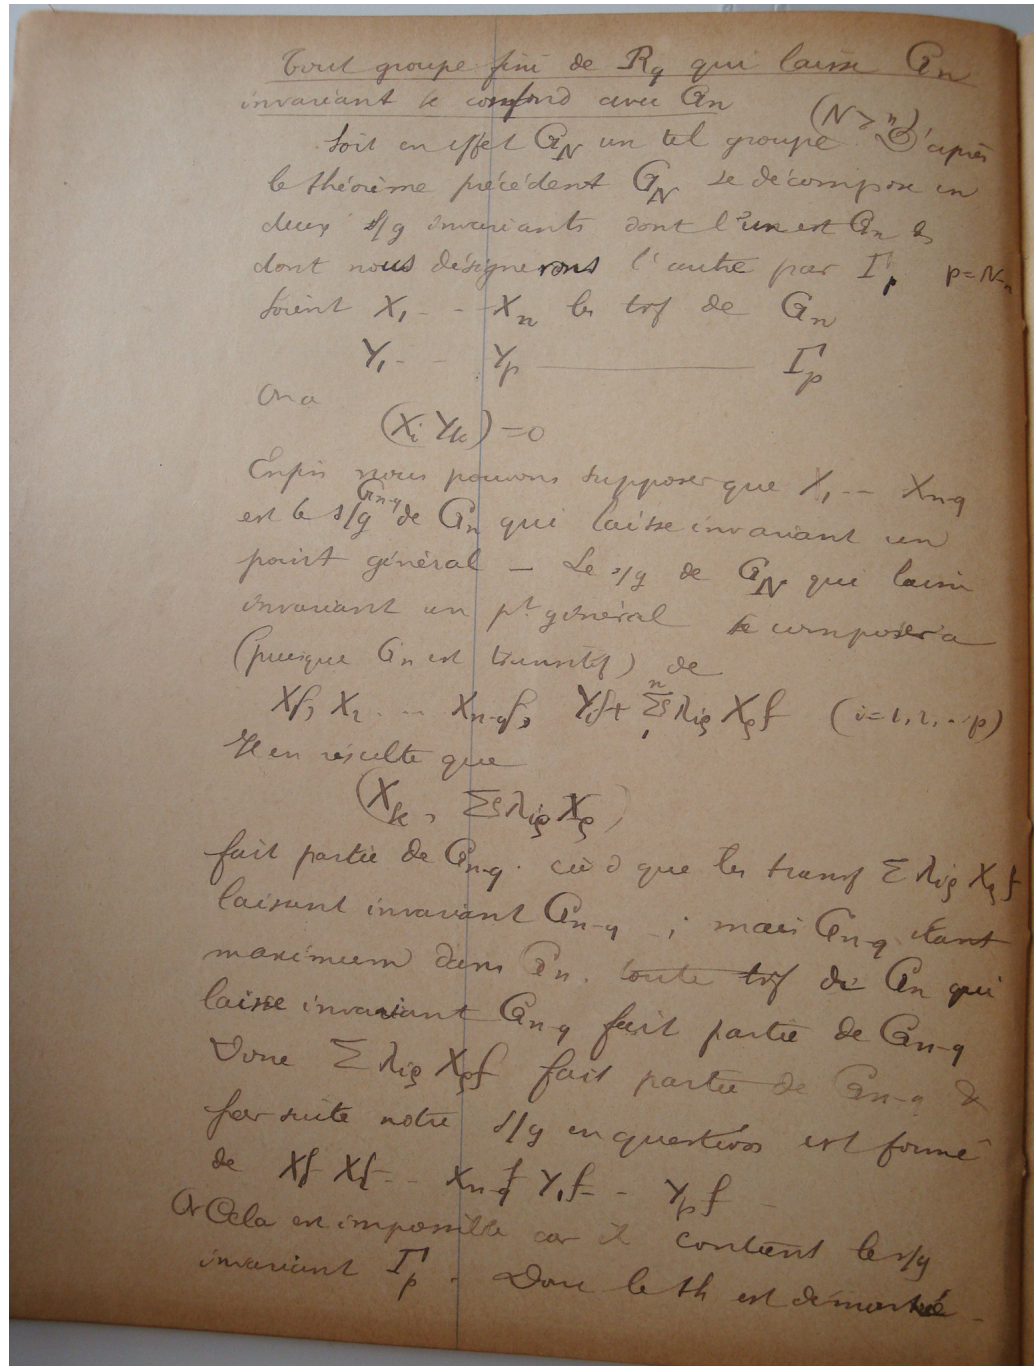 Tout groupe fini de R_q qui laisse G_n
invariant se confond avec G_n
Soit en effet G_N un tel groupe (N > n). D'après
le théorème précédent G_N se décompose en
deux s/g invariants dont l'un est G_n &
dont nous désignerons l'autre par Γ_p p = N-n
Soient X_1 - - X_n les trf de G_n
Y_1 - - Y_p ——— Γ_p
On a
(X_i Y_k) = 0
Enfin nous pouvons supposer que X_1 - - X_{n-q}
est le s/g G_{n-q} de G_n qui laisse invariant un
point général — Le s/g de G_N qui laisse
invariant un pt général se composera
(puisque G_n est transitif) de
X_1f, X_2 . . - X_{n-q}f, Y_if + Σ_1^n λ_{iρ} X_ρf (i=1, 2, .. p)
Il en résulte que
(X_k, Σ λ_{iρ} X_ρ)
fait partie de G_{n-q}. càd que les transf Σ λ_{iρ} X_ρf
laissent invariant G_{n-q} - ; mais G_{n-q} étant
maximum dans G_n. toute trf de G_n qui
laisse invariant G_{n-q} fait partie de G_{n-q}
Donc Σ λ_{iρ} X_ρf fait partie de G_{n-q} &
par suite notre s/g en question est formé
de X_1f X_2f - - X_{n-q}f Y_1f - - Y_pf
Or Cela est impossible car il contient le s/g
invariant Γ_p. Donc le th est démontré -